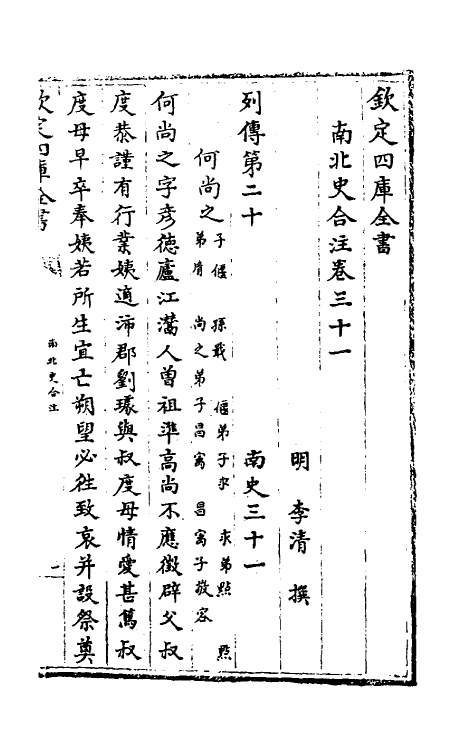 欽定四庫全書
南北史合注卷三十一
明 李清 撰
列傳第二十 南史三十一
何尚之 子偃 孫戢 偃弟子求 求弟點 點
弟胤 尚之弟子昌㝢 昌㝢子敬容
何尚之字彦德廬江灊人曾祖準高尚不應徵辟父叔
度恭謹有行業姨適沛郡劉璩與叔度母情愛甚篤叔
度母早卒奉姨若所生宜亡朔望必徃致哀并設祭奠
欽定四庫全書
南北史合注
一